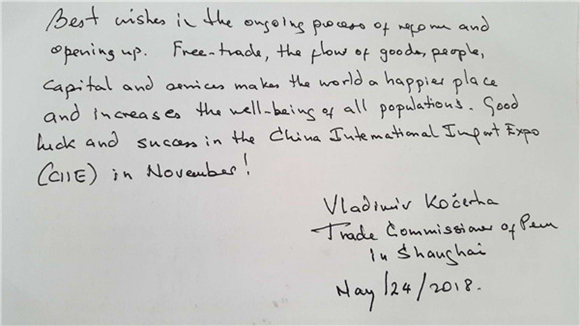 Best wishes in the ongoing process of reform and
opening up. Free-trade, the flow of goods, people,
capital and services makes the world a happier place
and increases the well-being of all populations. Good
luck and success in the China International Import Expo
(CIIE) in November!
Vladimir Kočerha
Trade Commissioner of Peru
in Shanghai
May/24/2018.